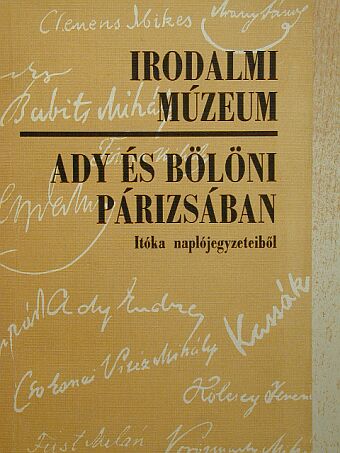 Clemens Mikes
Arany János
Babits Mihály
IRODALMI
MÚZEUM
ADY ÉS BÖLÖNI
PÁRIZSÁBAN
Itóka naplójegyzeteiből
Ady Endre
Kassák
Csokonai Vitéz Mihály
Kölcsey Ferenc
Füst Milán
Vörösmarty Mihá